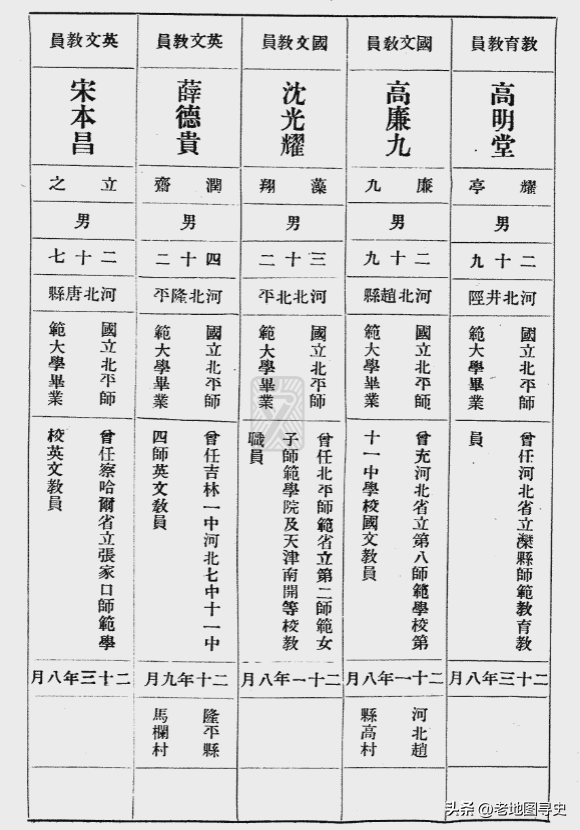 教育教員
高明堂
耀亭
男
二十九
河北井陘
國立北平師
範大學畢業
曾任河北省立灤縣師範教育教
員
二十三年八月
國文教員
高廉九
廉九
男
二十九
河北趙縣
國立北平師
範大學畢業
曾充河北省立第八師範學校第
十一中學校國文教員
二十一年八月
河北趙
縣高村
國文教員
沈光耀
藻翔
男
三十二
河北北平
國立北平師
範大學畢業
曾任北平師範省立第二師範女
子師範學院及天津南開等校教
職員
二十一年八月
英文教員
薛德貴
潤齋
男
四十二
河北隆平
國立北平師
範大學畢業
曾任吉林一中河北七中十一中
四師英文教員
二十年九月
隆平縣
馬欄村
英文教員
宋本昌
立之
男
二十七
河北唐縣
國立北平師
範大學畢業
曾任察哈爾省立張家口師範學
校英文教員
二十三年八月
头条 @老地图寻史